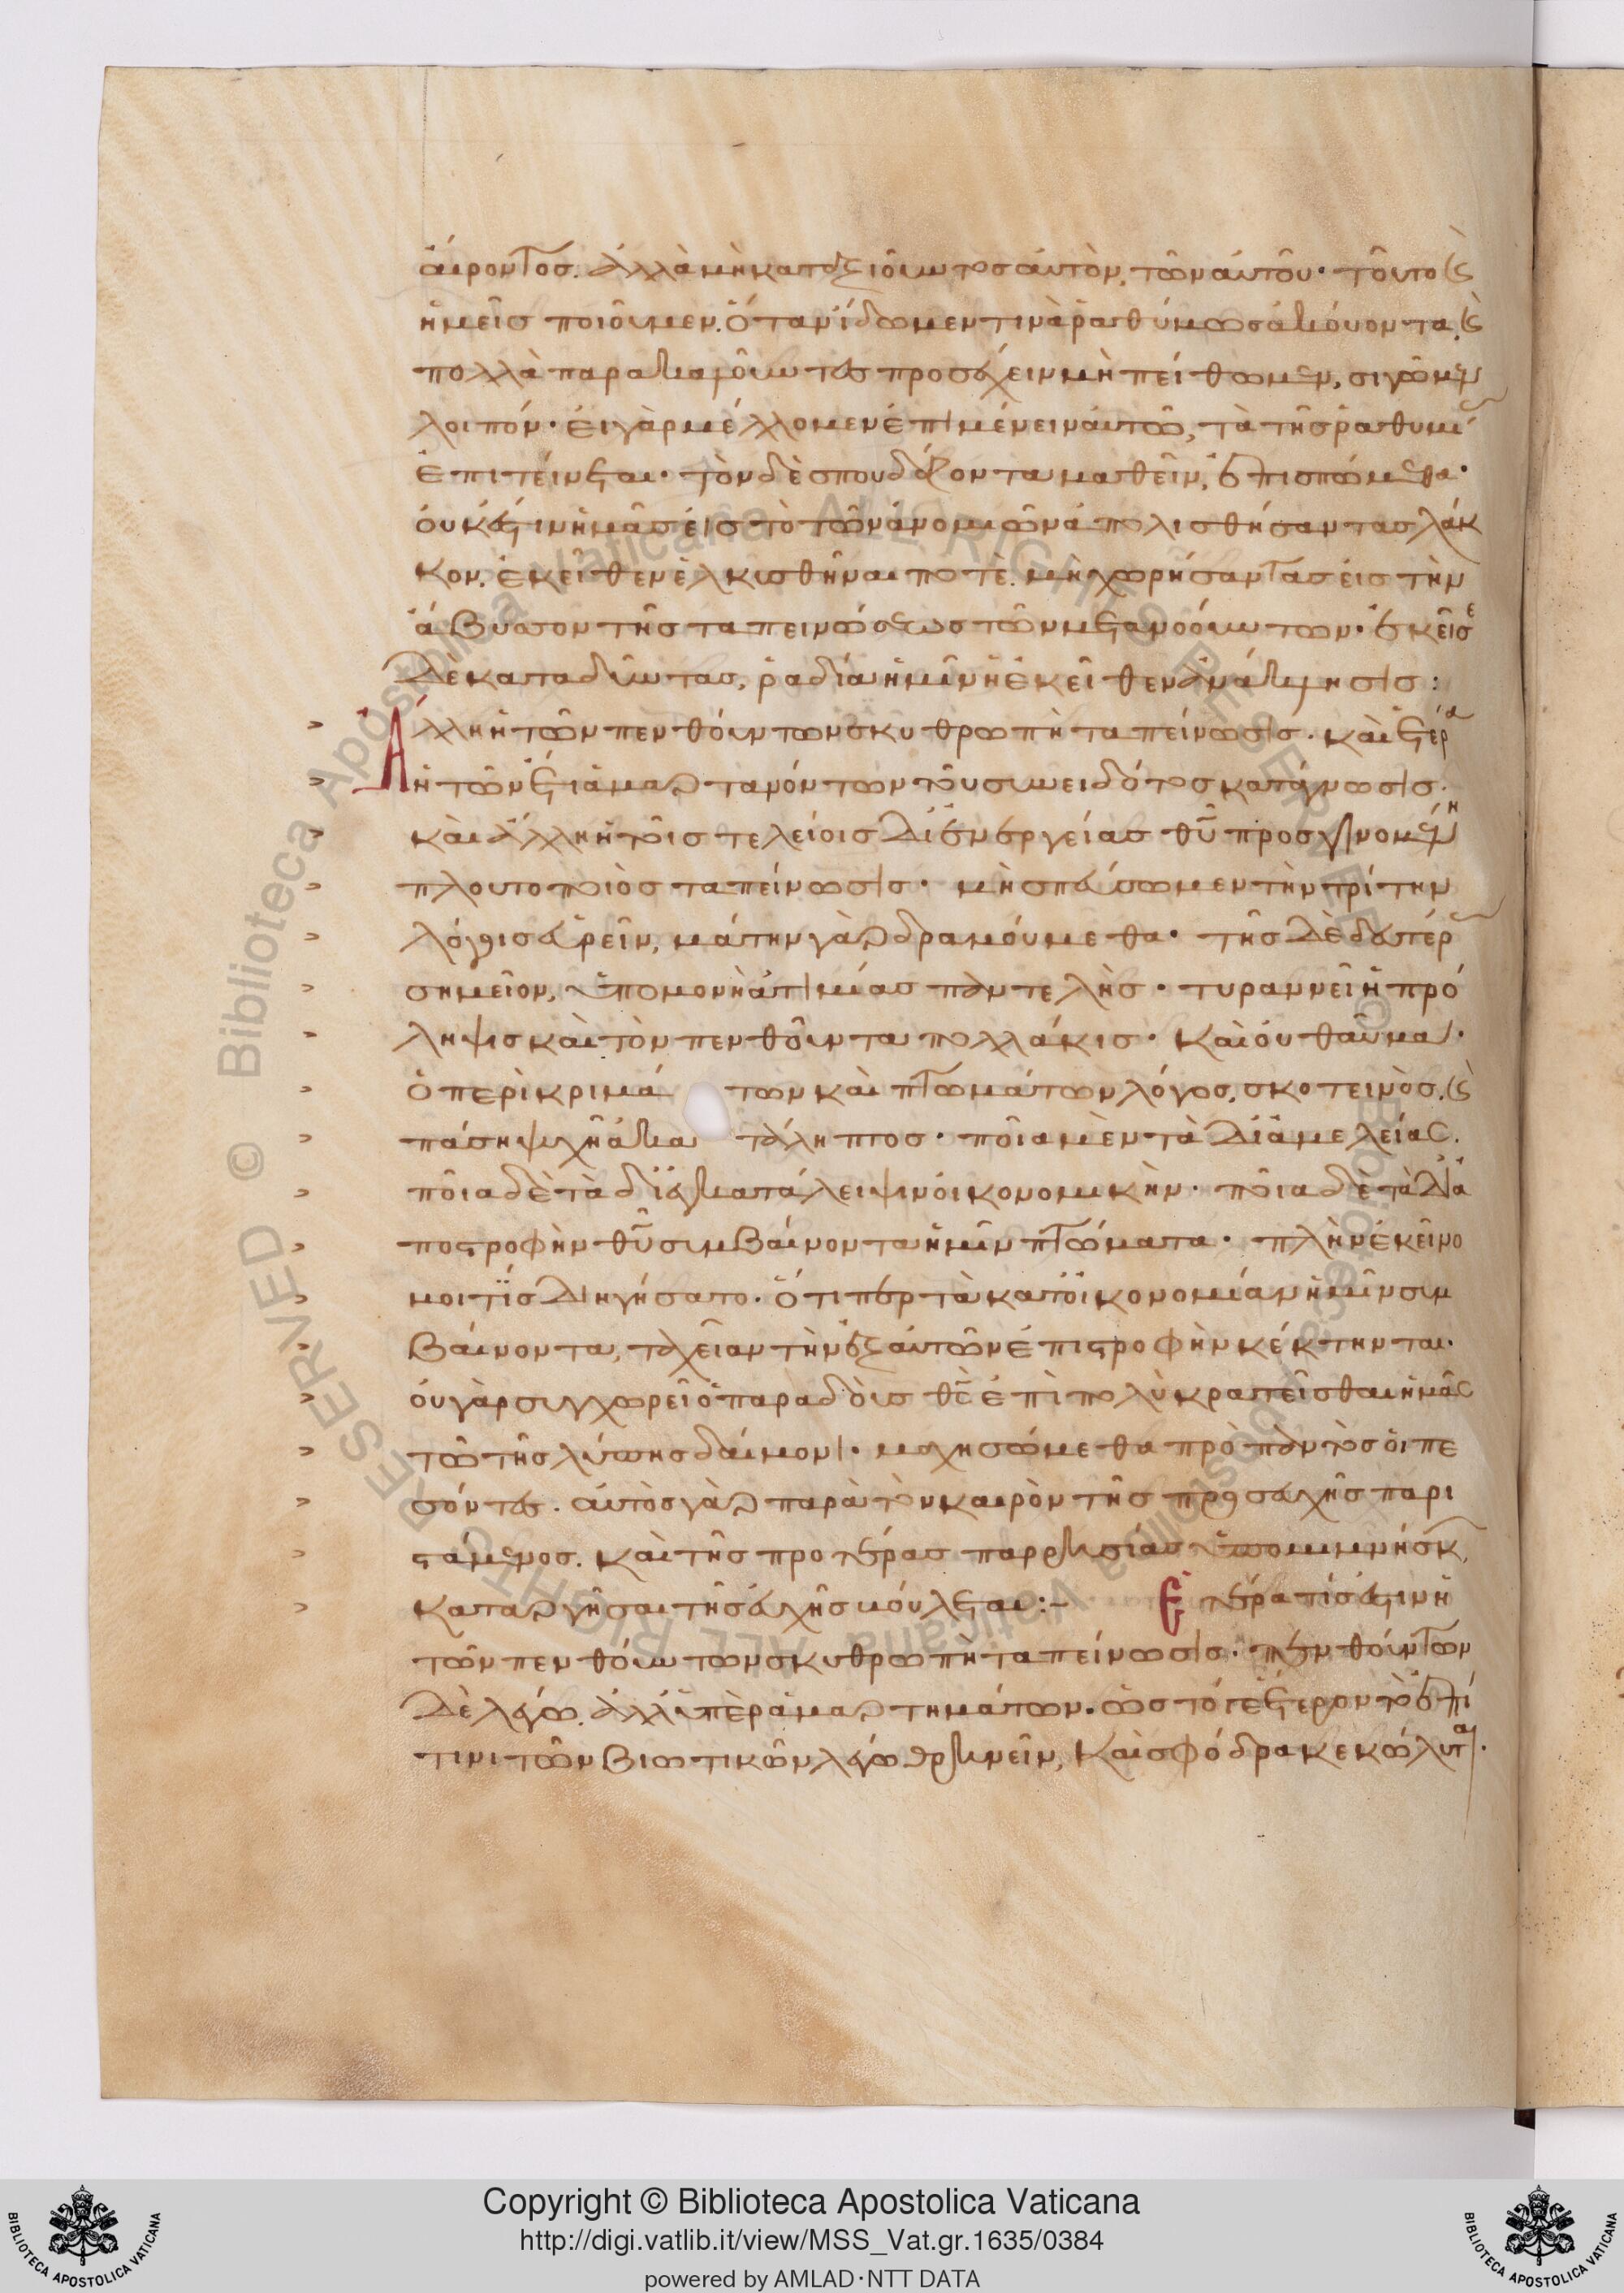 αἴροντος. ἀλλὰ μὴ καταξιοῦντος αὐτὸν, τῶν αὐτοῦ· τοῦτο κ(αὶ)
ἡμεῖς ποιοῦμεν. ὅταν ἴδωμεν τινὰ ῥαθύμως ἀκούοντα, κ(αὶ)
πολλὰ παρακαλοῦντες προσέχειν μὴ πείθωμεν, σιγῶμεν
λοιπόν· εἰ γὰρ μέλλομεν ἐπιμένειν αὐτῶ, τὰ τῆς ῥαθυμί
ἐπιτείνεται· τὸν δὲ σπουδάζοντα μαθεῖν, ἐπισπώμεθα·
οὐκ ἔστιν ἡμᾶς εἰς τὸ τῶν ἀνομιῶν ἀπολισθήσαντας λάκ
κον, ἐκεῖθεν ἑλκυσθῆναι ποτὲ. μὴ χωρήσαντας εἰς τὴν
ἄβυσσον τῆς ταπεινώσεως τῶν μετανοούντων· ἐκεῖσε
δὲ καταδύντας, ῥαδία ἡμῖν ἡ ἐκεῖθεν ἀνάκλησις:
Ἄλλη ἡ τῶν πενθούντων σκυθρωπὴ ταπείνωσις. καὶ ἑτέρα
ἡ τῶν ἔτι ἁμαρτανόντων τοῦ συνειδότος κατάγνωσις.
καὶ ἄλλη ἡ τοῖς τελείοις δι' ἐνεργείας θ(εο)ῦ προσγινομένη
πλουτοποιὸς ταπείνωσις· μὴ σπεύσωμεν τὴν τρίτην
λόγοις εὑρεῖν, μάτην γὰρ δραμούμεθα· τῆς δὲ δευτέρ
σημεῖον, ὑπομονὴ ἀτιμίας παντελὴς· τυραννεῖ ἡ πρό
ληψις καὶ τὸν πενθοῦντα πολλάκις· καὶ οὐ θαῦμα·
ὁ περὶ κριμάτων καὶ πτωμάτων λόγος, σκοτεινὸς, κ(αὶ)
πάση ψυχῆ ἀκατάληπτος· ποῖα μὲν τὰ δι' ἀμελείας.
ποῖα δὲ τὰ δι' ἐγκατάλειψιν οἰκονομικὴν· ποῖα δὲ τὰ δι' ἀ
ποστροφὴν θ(εο)ῦ συμβαίνοντα ἡμῖν πτώματα· πλὴν ἐκεῖνο
μοι τίς διηγήσατο. ὅτιπερ τὰ κατ' οἰκονομίαν ἡμῖν συμ
βαίνοντα, ταχεῖαν τὴν ἐξ αὐτῶν ἐπιστροφὴν κέκτηνται·
οὐ γὰρ συγχωρεῖ ὁ παραδοὺς θ(εὸ)ς ἐπὶ πολὺ κρατεῖσθαι ἡμᾶς
τῶ τῆς λύπης δαίμονι· μαχησώμεθα πρὸ παντὸς οἱ πε
σόντες. αὐτὸς γὰρ παρὰ τὸν καιρὸν τῆς προσευχῆς παρι
στάμενος. καὶ τῆς προτέρας παρρησίας ὑπομιμνήσκ,
καταργῆσαι τῆς εὐχῆς βούλεται:– Ἑτέρα τίς ἐστιν ἡ
τῶν πενθούντων σκυθρωπὴ ταπείνωσις· πενθούντων
δὲ λέγω. ἀλλ' ὑπὲρ ἁμαρτημάτων. ὡς τό γε ἕτερον τὸ ἐπί
τινι τῶν βιωτικῶν λέγω θρηνεῖν, καὶ σφόδρα κεκώλυται.
Copyright © Biblioteca Apostolica Vaticana
http://digi.vatlib.it/view/MSS_Vat.gr.1635/0384
powered by AMLAD·NTT DATA